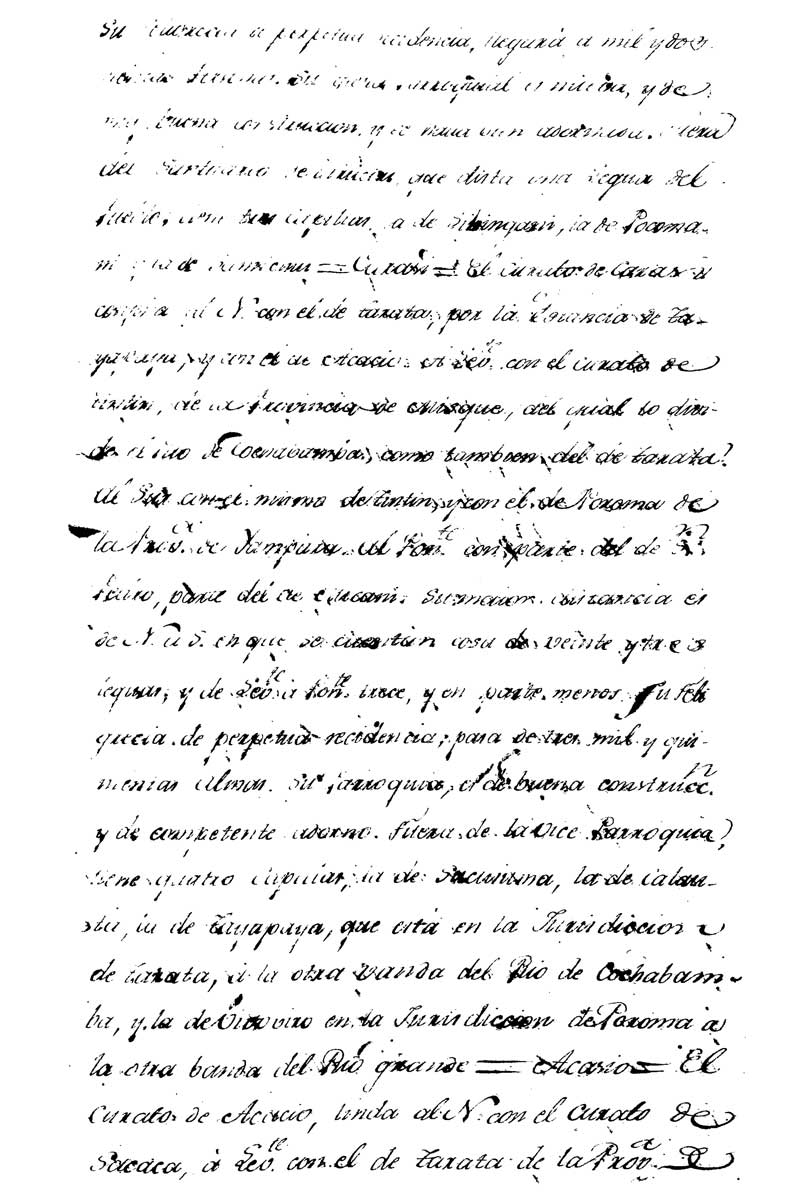 Su perpetua recidencia, llegará á mil y dos
cientas Su parroquial es nueva, y de
muy buena construccion, y se halla bien adornada. Fuera
del Santuario que dista una legua del
Pueblo, tiene tres capillas, la de la de Pocoma-
ni y la de = Carasi = El Curato de Carasi
confina al N. con el de tarata, por la Estancia de Ta-
yapaya, y con el de Acacio. Al Lev.te con el curato de
tintin, de la Provincia de Misque, del qual lo divi-
de el rio de Cochabamba, como tambien del de tarata.
Al Sur con el mismo de tintin, y con el de Poroma de
la Prov.a de Yamparaes. Al Pon.te con parte del de S.n
Pedro, parte del de Su maior distancia es
de N. a S. en que se cuentan cosa de veinte y tres
leguas, y de Lev.te á Pon.te trece, y en parte menos. Su feli
grecia de perpetua recidencia, pasa de tres mil y qui-
nientas Almas. Su Parroquia, es de buena construcc.n
y de competente adorno. Fuera de la Vice Parroquia,
tiene quatro capillas, la de la de
la de Tayapaya, que está en la Jurisdiccion
de tarata, á la otra vanda del Rio de Cochabam-
ba, y la de en la Jurisdiccion de Poroma á
la otra banda del Rio grande = Acasio = El
Curato de Acacio, linda al N. con el Curato de
Sacaca, á Lev.te con el de Tarata de la Prov.a De